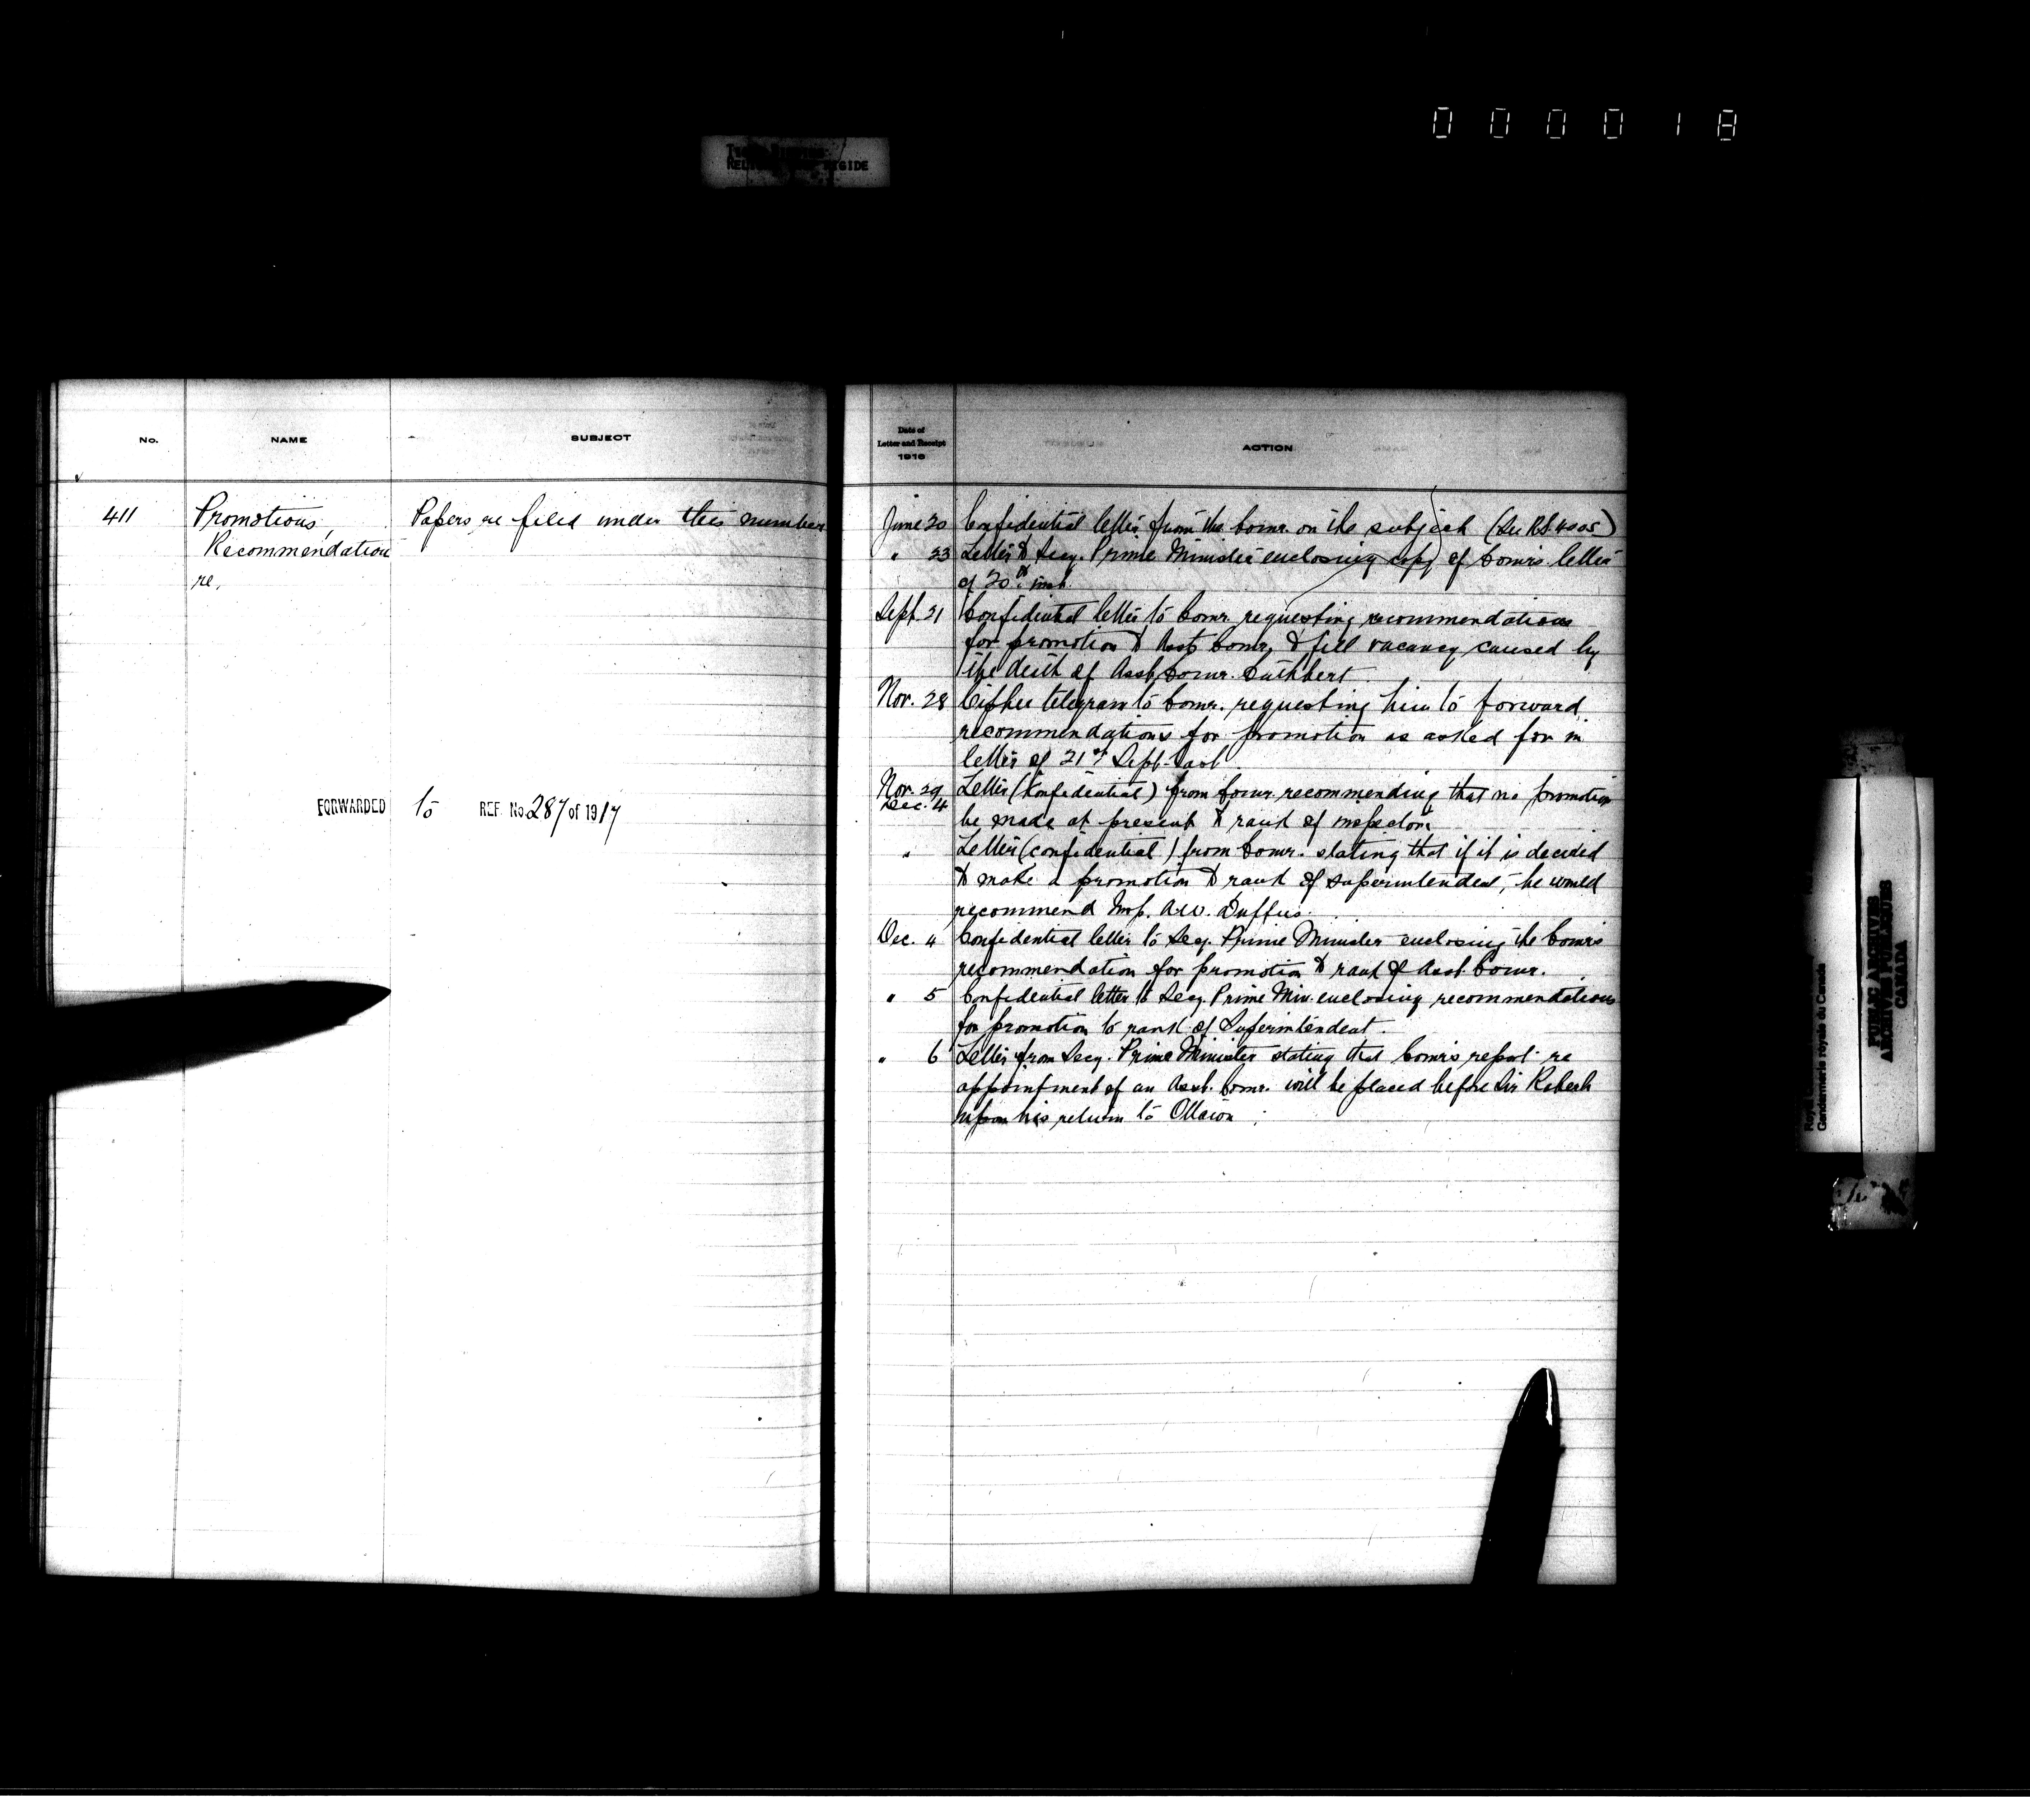 000018
REGIDE
No.
NAME
SUBJECT
411
Promotions,
Recommendations
re.
Papers re filed under this number
FORWARDED to REF. No. 287 of 1917
Date of
Letter and Receipt
1916
ACTION
June 20 Confidential letter from the Comr. on the subject (See R.S. 4005)
" 23 Letter to Secy. Prime Minister enclosing copy of Comr's letter
of 20th inst.
Sept. 21 Confidential letter to Comr. requesting recommendations
for promotion to Asst. Comr. to fill vacancy caused by
the death of Asst. Comr. Cuthbert.
Nov. 28 Cipher telegram to Comr. requesting him to forward
recommendations for promotion as asked for in
letter of 21st Sept. last.
Nov. 29 Letter (Confidential) from Comr. recommending that no promotion
Dec. 4 be made at present to rank of Inspector.
" Letter (confidential) from Comr. stating that if it is decided
to make a promotion to rank of superintendent, he would
recommend Insp. A.W. Duffus.
Dec. 4 Confidential letter to Secy. Prime Minister enclosing the Comr's
recommendation for promotion to rank of Asst. Comr.
" 5 Confidential letter to Secy. Prime Min. enclosing recommendations
for promotion to rank of Superintendent.
" 6 Letter from Secy. Prime Minister stating that Comr's report re
appointment of an Asst. Comr. will be placed before Sir Robert
upon his return to Ottawa.
Gendarmerie royale du Canada
PUBLIC ARCHIVES
ARCHIVES PUBLIQUES
CANADA